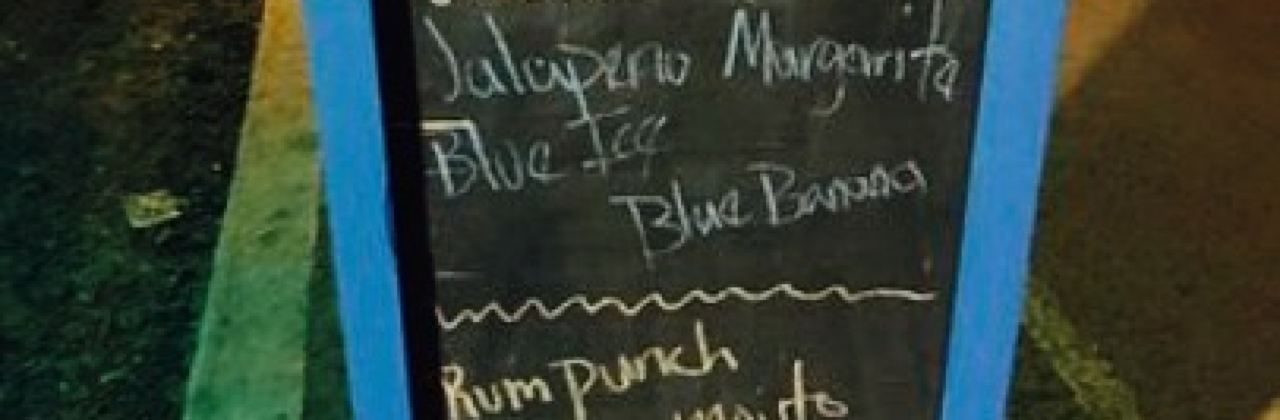 Jalapeno Margarita
Blue Ice
Blue Banana
Rum punch
mojito